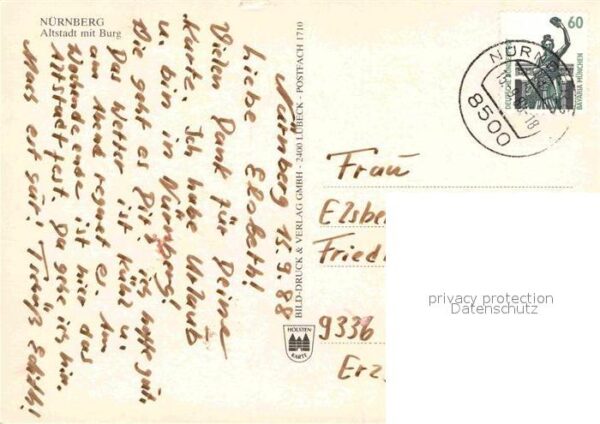 NÜRNBERG
Altstadt mit Burg
Nürnberg 15.9.88
Liebe Elsbeth!
Vielen Dank für Deine
Karte. Ich habe Urlaub
u. bin in Nürnberg.
Wie geht es Dir, ich hoffe gut.
Das Wetter ist kühl u.
am Abend regnet es. Am
Wochenende ist hier das
Altstadtfest. Da gehe ich hin.
Mach's gut! Edith!
BILD-DRUCK & VERLAG GMBH - 2400 LÜBECK - POSTFACH 1710
HOLSTEN
KARTE
60
DEUTSCHE BUNDESPOST
BAVARIA MÜNCHEN
NÜRNB
8500
Frau
Elsbe
Fried
9336
Erz
privacy protection
Datenschutz